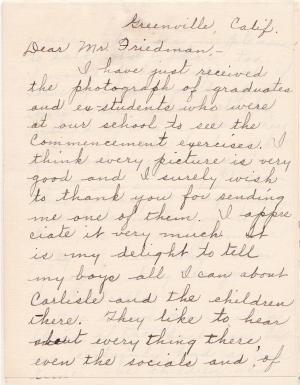 Greenville, Calif.
Dear Mr. Friedman,-
I have just received
the photograph of graduates
and ex-students who were
at our school to see the
Commencement exercises. I
think every picture is very
good and I surely wish
to thank you for sending
me one of them. I appre
ciate it very much It
is my delight to tell
my boys all I can about
Carlisle and the children
there. They like to hear
about every thing there,
even the socials and, of